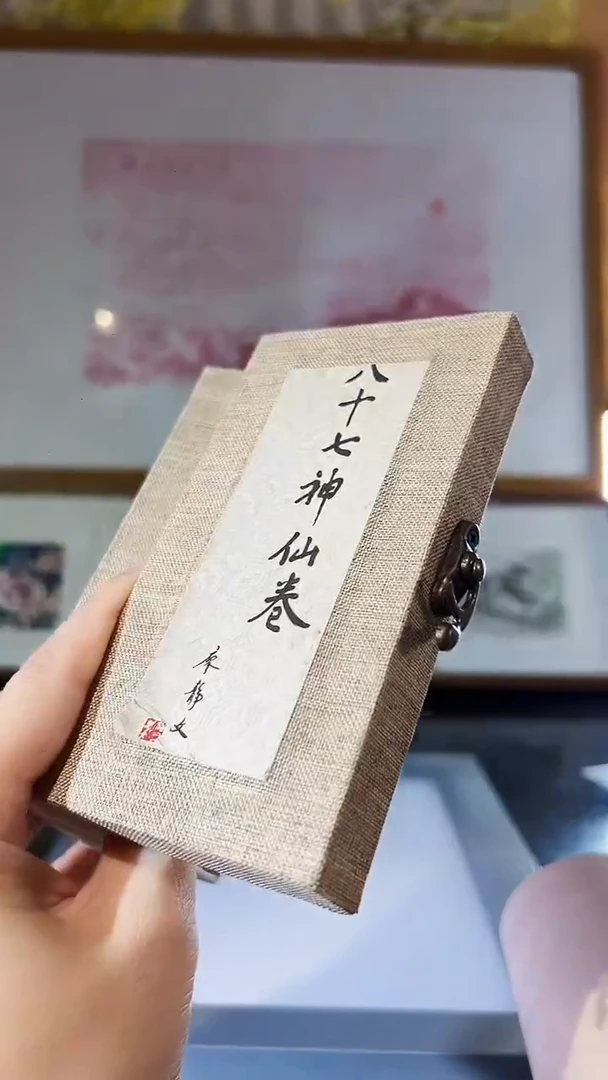 八十七神仙卷
廖静文